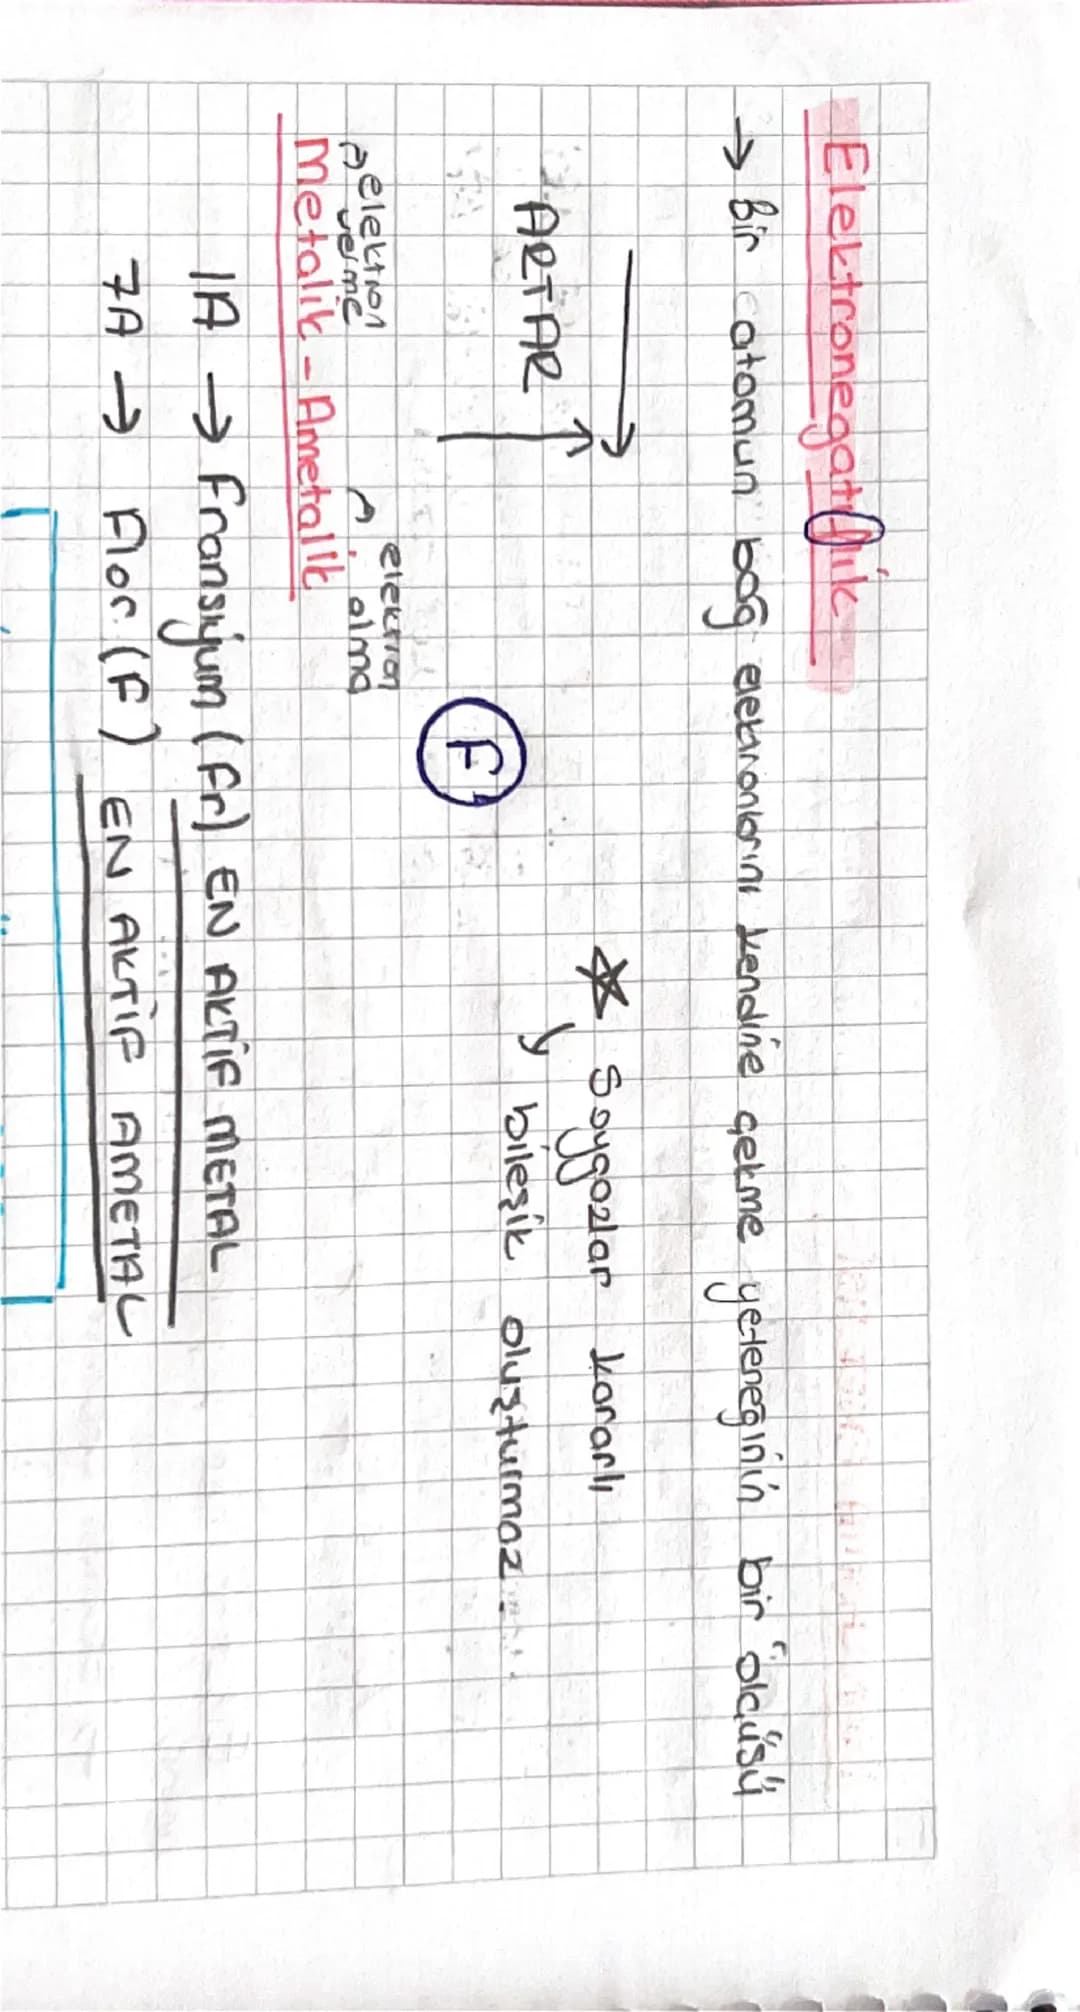 Elektronegatiflik
→ Bir atomun bağ elektronlarını kendine çekme yeteneğinin bir ölçüsü
ARTAR
☆ Soygazlar kararlı
↳ bileşik oluşturmaz.
F
elektron verme
elektron alma
Metalik - Ametalik
1A → Fransiyum (Fr) EN AKTİF METAL
7A → Flor (F) EN AKTİF AMETAL